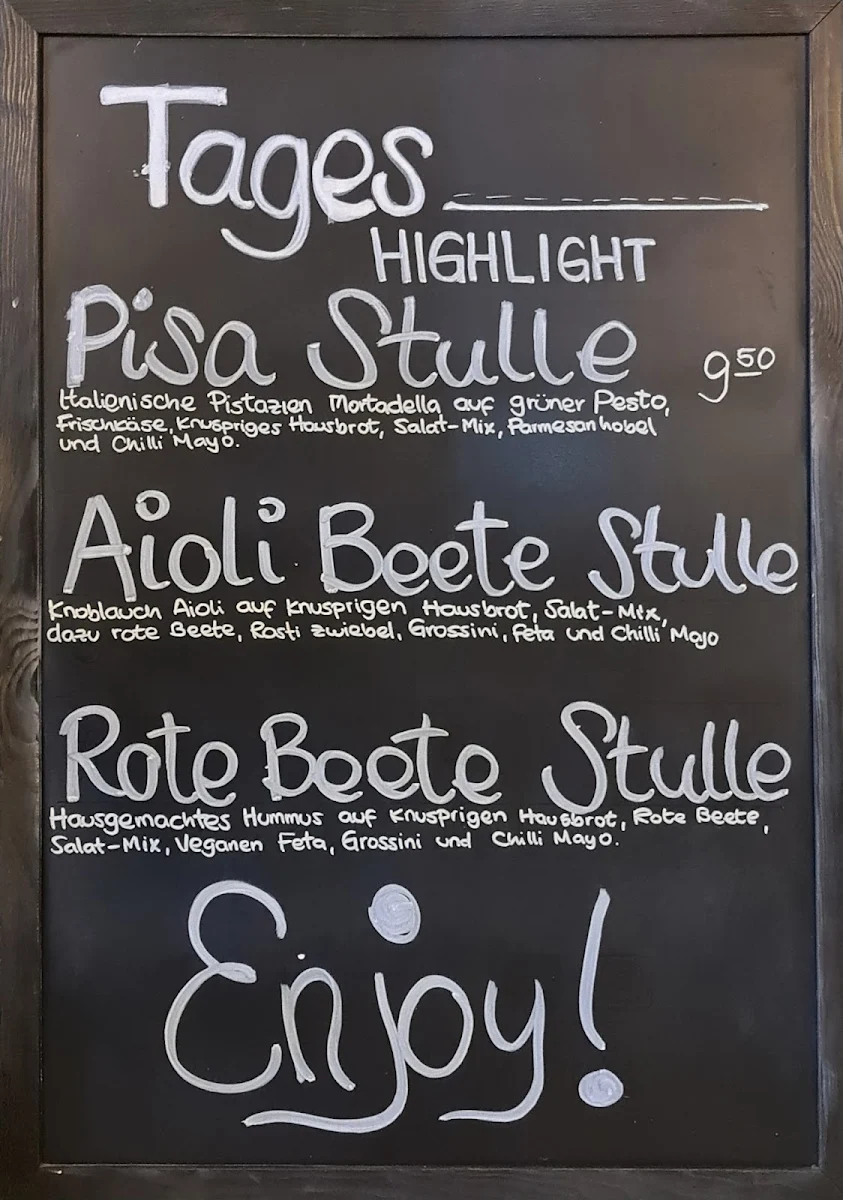 Tages
HIGHLIGHT
Pisa Stulle
9 50
Italienische Pistazien Mortadella auf grüner Pesto,
Frischkäse, Knuspriges Hausbrot, Salat-Mix, Parmesan hobel
und Chilli Mayo.
Aioli Beete Stulle
Knoblauch Aioli auf knusprigen Hausbrot, Salat-Mix,
dazu rote Beete, Rösti zwiebel, Grossini, Feta und Chilli Mayo
Rote Beete Stulle
Hausgemachtes Hummus auf knusprigen Hausbrot, Rote Beete,
Salat-Mix, Veganen Feta, Grossini und Chilli Mayo.
Enjoy!